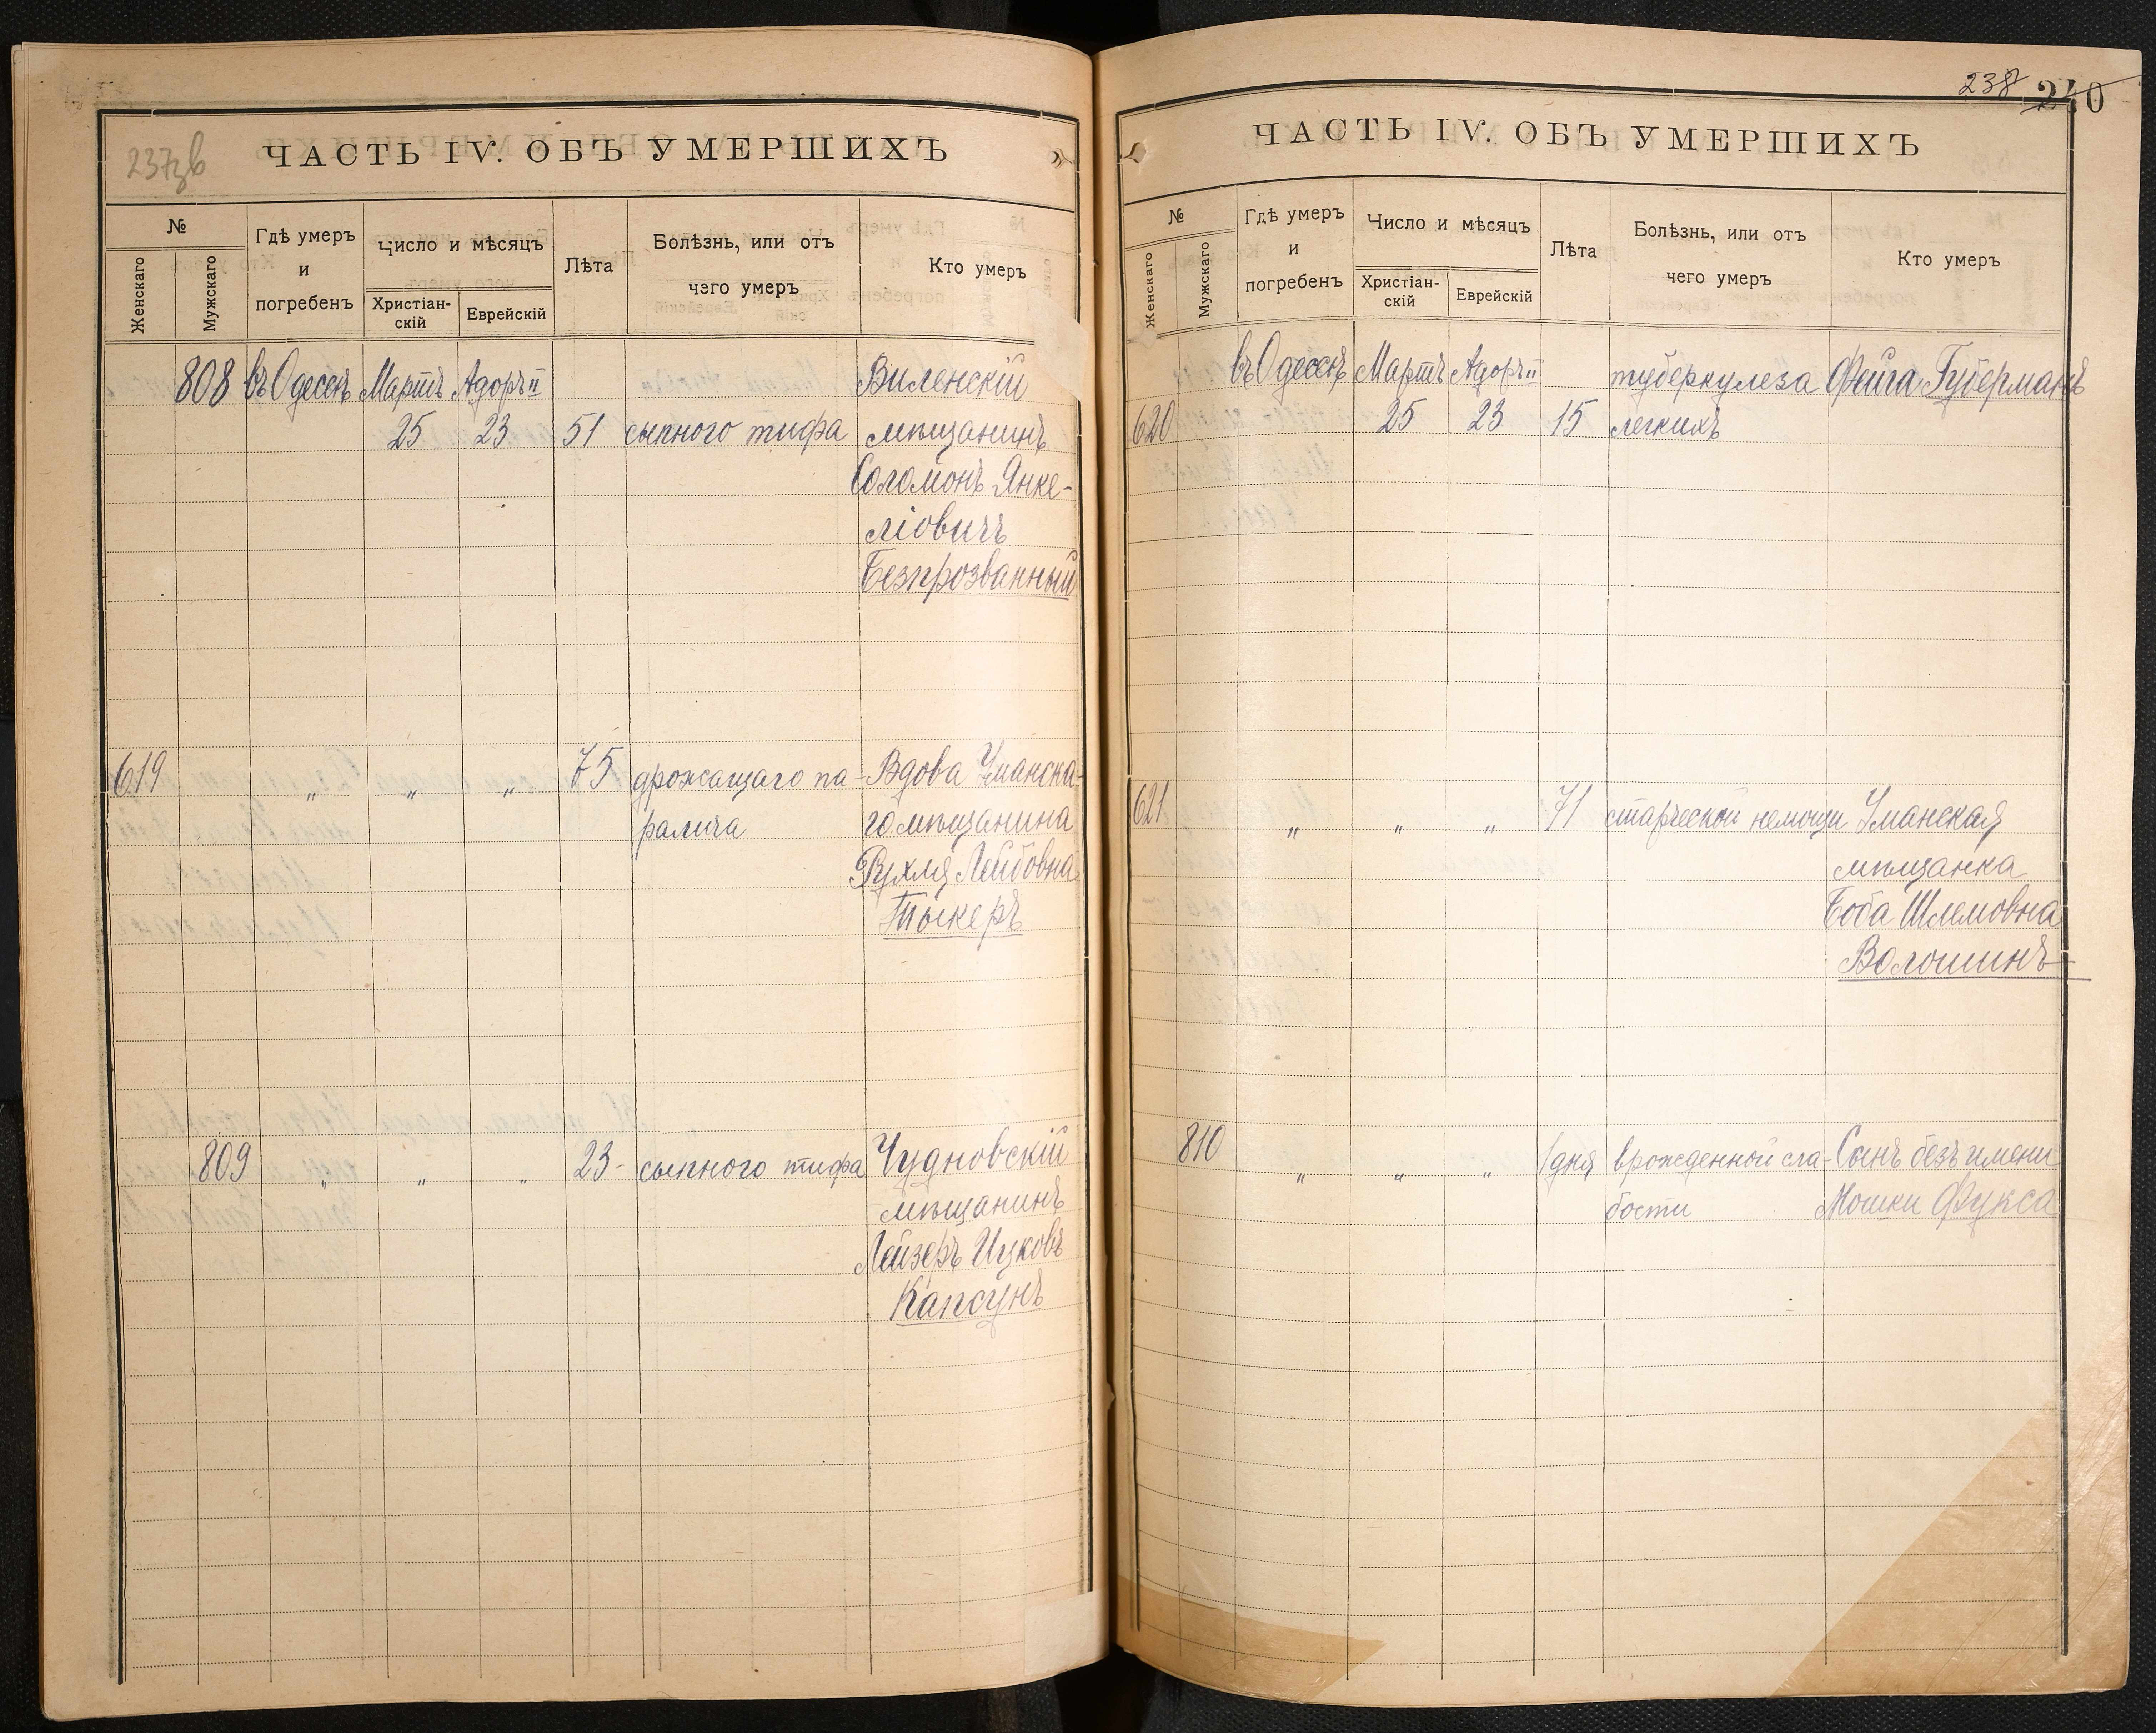 237зв
ЧАСТЬ IV. ОБЪ УМЕРШИХЪ
№
Женскаго
Мужскаго
Гдѣ умеръ
и
погребенъ
Число и мѣсяцъ
Христіан-
скій
Еврейскій
Лѣта
Болѣзнь, или отъ
чего умеръ
Кто умеръ
808 въ Одессѣ Мартъ Адоръ II Виленскій
25 23 51 сыпного тифа мѣщанинъ
Соломонъ Янке-
ліовичъ
Безпрозванный
619 „ „ „ 75 дрожащаго па- Вдова Уманска-
ралича го мѣщанина
Рухля Лейбовна
Тыкеръ
809 „ „ „ 23 - сыпного тифа Чудновскій
мѣщанинъ
Лейзеръ Ицковъ
Капсунъ
238 240
ЧАСТЬ IV. ОБЪ УМЕРШИХЪ
№
Женскаго
Мужскаго
Гдѣ умеръ
и
погребенъ
Число и мѣсяцъ
Христіан-
скій
Еврейскій
Лѣта
Болѣзнь, или отъ
чего умеръ
Кто умеръ
въ Одессѣ Мартъ Адоръ II туберкулеза Фейга Губерманъ
620 25 23 15 легкихъ
621 „ „ „ 71 старческой немощи Уманская
мѣщанка
Боба Шлемовна
Волошинъ
810 „ „ „ 1 дня врожденной сла- Сынъ безъ имени
бости Мошки Фукса